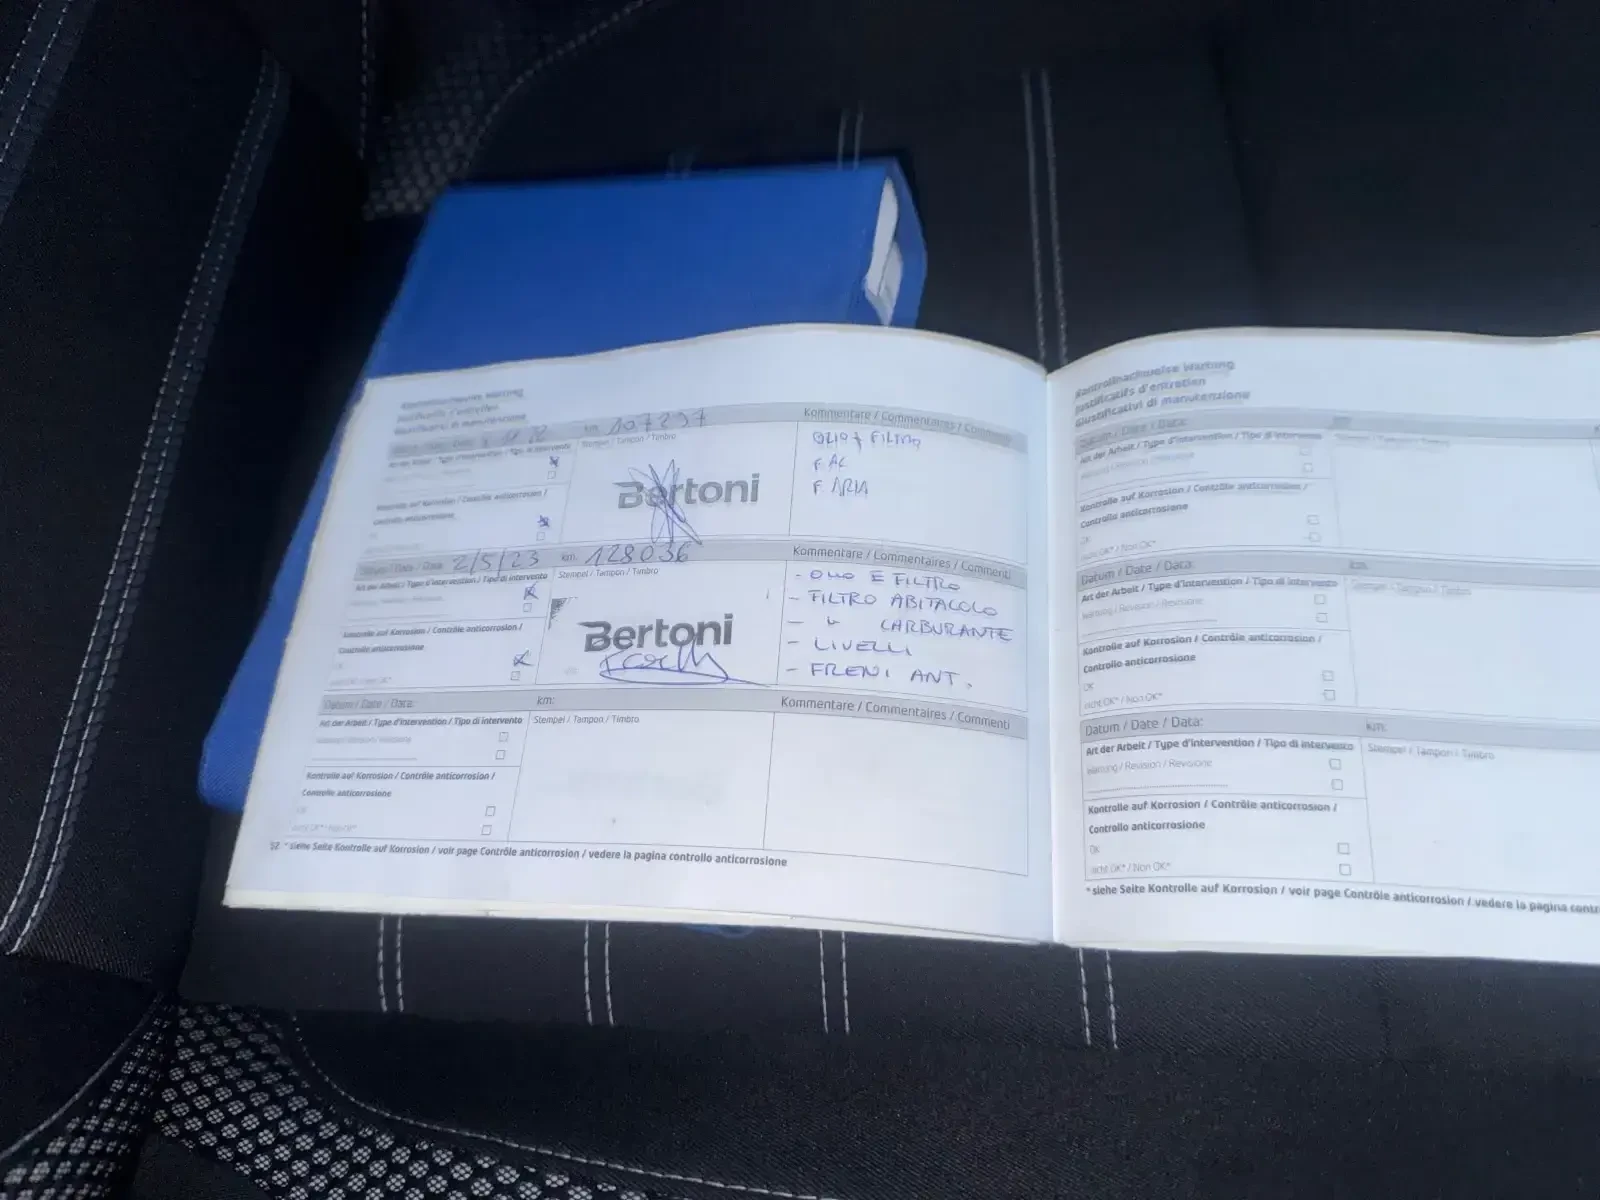 Kontrollnachweise Wartung
Justificatifs d'entretien
Giustificativi di manutenzione
km: 107297
Kommentare / Commentaires / Commenti
Art der Arbeit / Type d'intervention / Tipo di intervento
Stempel / Tampon / Timbro
OLIO + FILTRO
F. AC
F. ARIA
Bertoni
Kontrolle auf Korrosion / Contrôle anticorrosion /
Controllo anticorrosione
Datum / Date / Data: 2/5/23
km: 128036
Kommentare / Commentaires / Commenti
Art der Arbeit / Type d'intervention / Tipo di intervento
Stempel / Tampon / Timbro
- OLIO E FILTRO
- FILTRO ABITACOLO
- " CARBURANTE
- LIVELLI
- FRENI ANT.
Bertoni
Kontrolle auf Korrosion / Contrôle anticorrosion /
Controllo anticorrosione
OK
nicht OK* / Non OK*
Datum / Date / Data:
km:
Kommentare / Commentaires / Commenti
Art der Arbeit / Type d'intervention / Tipo di intervento
Stempel / Tampon / Timbro
Wartung / Revision / Revisione
Kontrolle auf Korrosion / Contrôle anticorrosion /
Controllo anticorrosione
OK
nicht OK* / Non OK*
52 * siehe Seite Kontrolle auf Korrosion / voir page Contrôle anticorrosion / vedere la pagina controllo anticorrosione
Kontrollnachweise Wartung
Justificatifs d'entretien
Giustificativi di manutenzione
Datum / Date / Data:
km:
Art der Arbeit / Type d'intervention / Tipo di intervento
Stempel / Tampon / Timbro
Wartung / Revision / Revisione
Kontrolle auf Korrosion / Contrôle anticorrosion /
Controllo anticorrosione
OK
nicht OK* / Non OK*
Datum / Date / Data:
km:
Art der Arbeit / Type d'intervention / Tipo di intervento
Stempel / Tampon / Timbro
Wartung / Revision / Revisione
Kontrolle auf Korrosion / Contrôle anticorrosion /
Controllo anticorrosione
OK
nicht OK* / Non OK*
Datum / Date / Data:
km:
Art der Arbeit / Type d'intervention / Tipo di intervento
Stempel / Tampon / Timbro
Wartung / Revision / Revisione
Kontrolle auf Korrosion / Contrôle anticorrosion /
Controllo anticorrosione
OK
nicht OK* / Non OK*
* siehe Seite Kontrolle auf Korrosion / voir page Contrôle anticorrosion / vedere la pagina